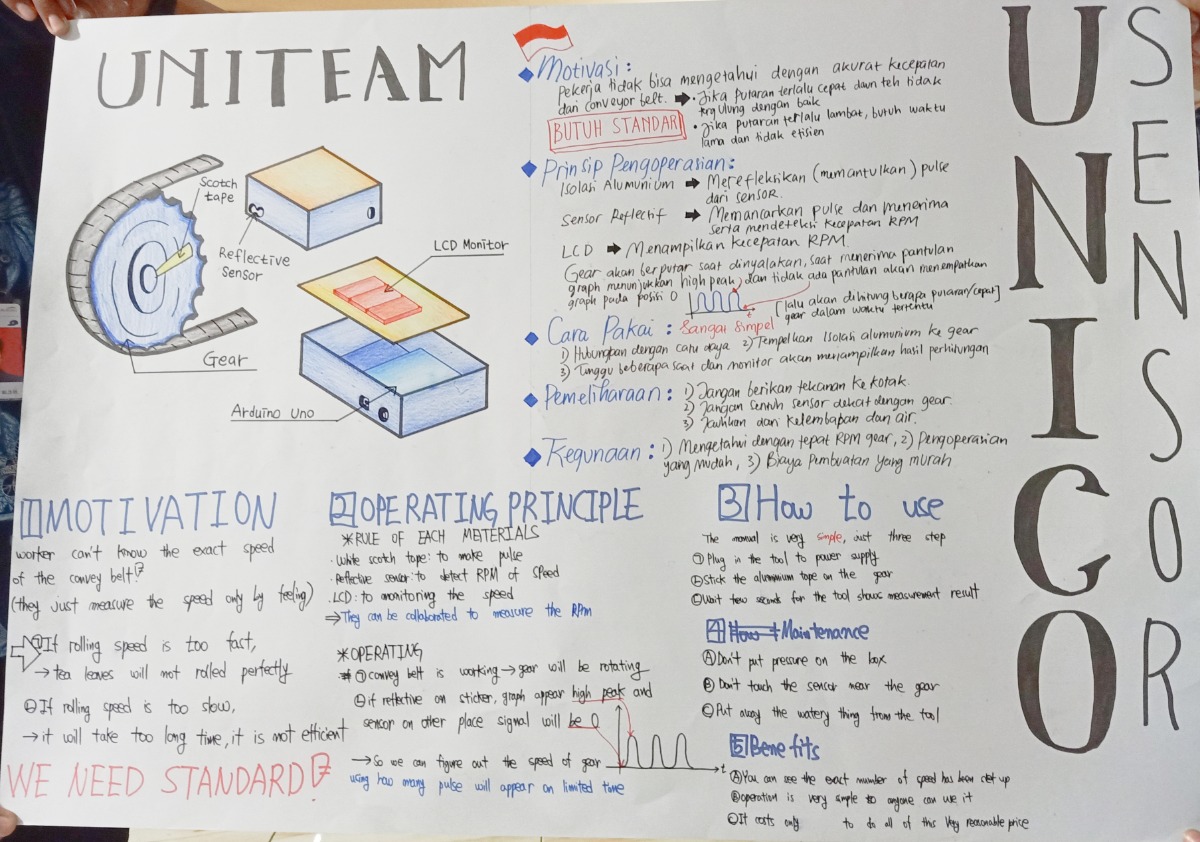 UNITEAM
Scotch
tape
Reflective
Sensor
LCD Monitor
Gear
Arduino Uno
Motivasi :
Pekerja tidak bisa mengetahui dengan akurat kecepatan
dari conveyor belt. ➡ • Jika putaran terlalu cepat daun teh tidak
tergulung dengan baik
BUTUH STANDAR
• Jika putaran terlalu lambat, butuh waktu
lama dan tidak efisien
Prinsip Pengoperasian :
Isolasi Alumunium ➡ Merefleksikan (memantulkan) pulse
dari sensor.
Sensor Reflectif ➡ Memancarkan pulse dan menerima
serta mendeteksi kecepatan RPM
LCD ➡ Menampilkan kecepatan RPM.
Gear akan berputar saat dinyalakan, saat menerima pantulan
graph menunjukkan high peak, dan tidak ada pantulan akan menempatkan
graph pada posisi 0
t
[lalu akan dihitung berapa putaran/cepat]
gear dalam waktu tertentu
Cara Pakai : Sangat Simpel
1) Hubungkan dengan catu daya 2) Tempelkan Isolasi alumunium ke gear
3) Tunggu beberapa saat dan monitor akan menampilkan hasil perhitungan
Pemeliharaan : 1) Jangan berikan tekanan ke kotak.
2) Jangan sentuh sensor dekat dengan gear.
3) Jauhkan dari kelembapan dan air.
Kegunaan : 1) Mengetahui dengan tepat RPM gear, 2) Pengoperasian
yang mudah, 3) Biaya Pembuatan yang murah
UNICO
SENSOR
1 MOTIVATION
worker can't know the exact speed
of the convey belt!
(they just measure the speed only by feeling)
① If rolling speed is too fast,
→ tea leaves will not rolled perfectly
② If rolling speed is too slow,
→ it will take too long time, it is not efficient
WE NEED STANDARD!
2 OPERATING PRINCIPLE
* RULE OF EACH MATERIALS
· White scotch tape : to make pulse
· Reflective sensor : to detect RPM of speed
· LCD : to monitoring the speed
⇒ They can be collaborated to measure the RPM
* OPERATING
① convey belt is working → gear will be rotating
② if reflective on sticker, graph appear high peak and
sensor on other place signal will be 0
→ So we can figure out the speed of gear
using how many pulse will appear on limited time
t
3 How to use
The manual is very simple, just three step
① Plug in the tool to power supply
② Stick the aluminium tape on the gear
③ Wait few seconds for the tool shows measurement result
4 Maintenance
Ⓐ Don't put pressure on the box
Ⓑ Don't touch the sensor near the gear
Ⓒ Put away the watery thing from the tool
5 Benefits
Ⓐ You can see the exact number of speed has been set up
Ⓑ operation is very simple so anyone can use it
Ⓒ It costs only to do all of this Very reasonable price